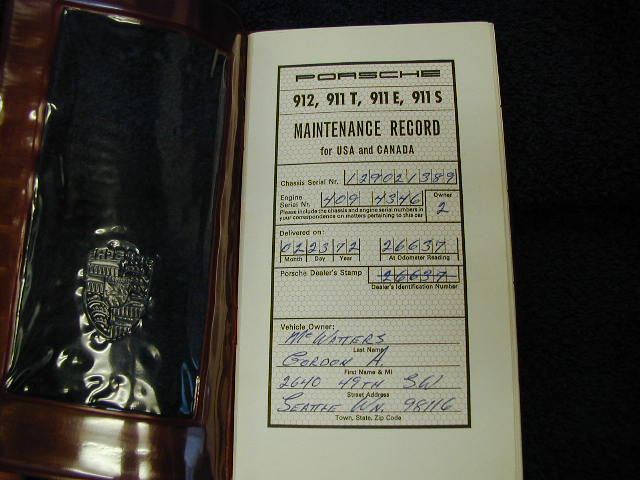 PORSCHE
912, 911 T, 911 E, 911 S
MAINTENANCE RECORD
for USA and CANADA
Chassis Serial Nr. 129021389
Engine Serial Nr. 409 4346 Owner 2
Please include the chassis and engine serial numbers in
your correspondence on matters pertaining to this car
Delivered on:
02 23 72 26637
Month Day Year At Odometer Reading
Porsche Dealer's Stamp 26637
Dealer's Identification Number
Vehicle Owner:
McWatters
Last Name
Gordon A.
First Name & MI
2640 49th S.W.
Street Address
Seattle Wn. 98116
Town, State, Zip Code